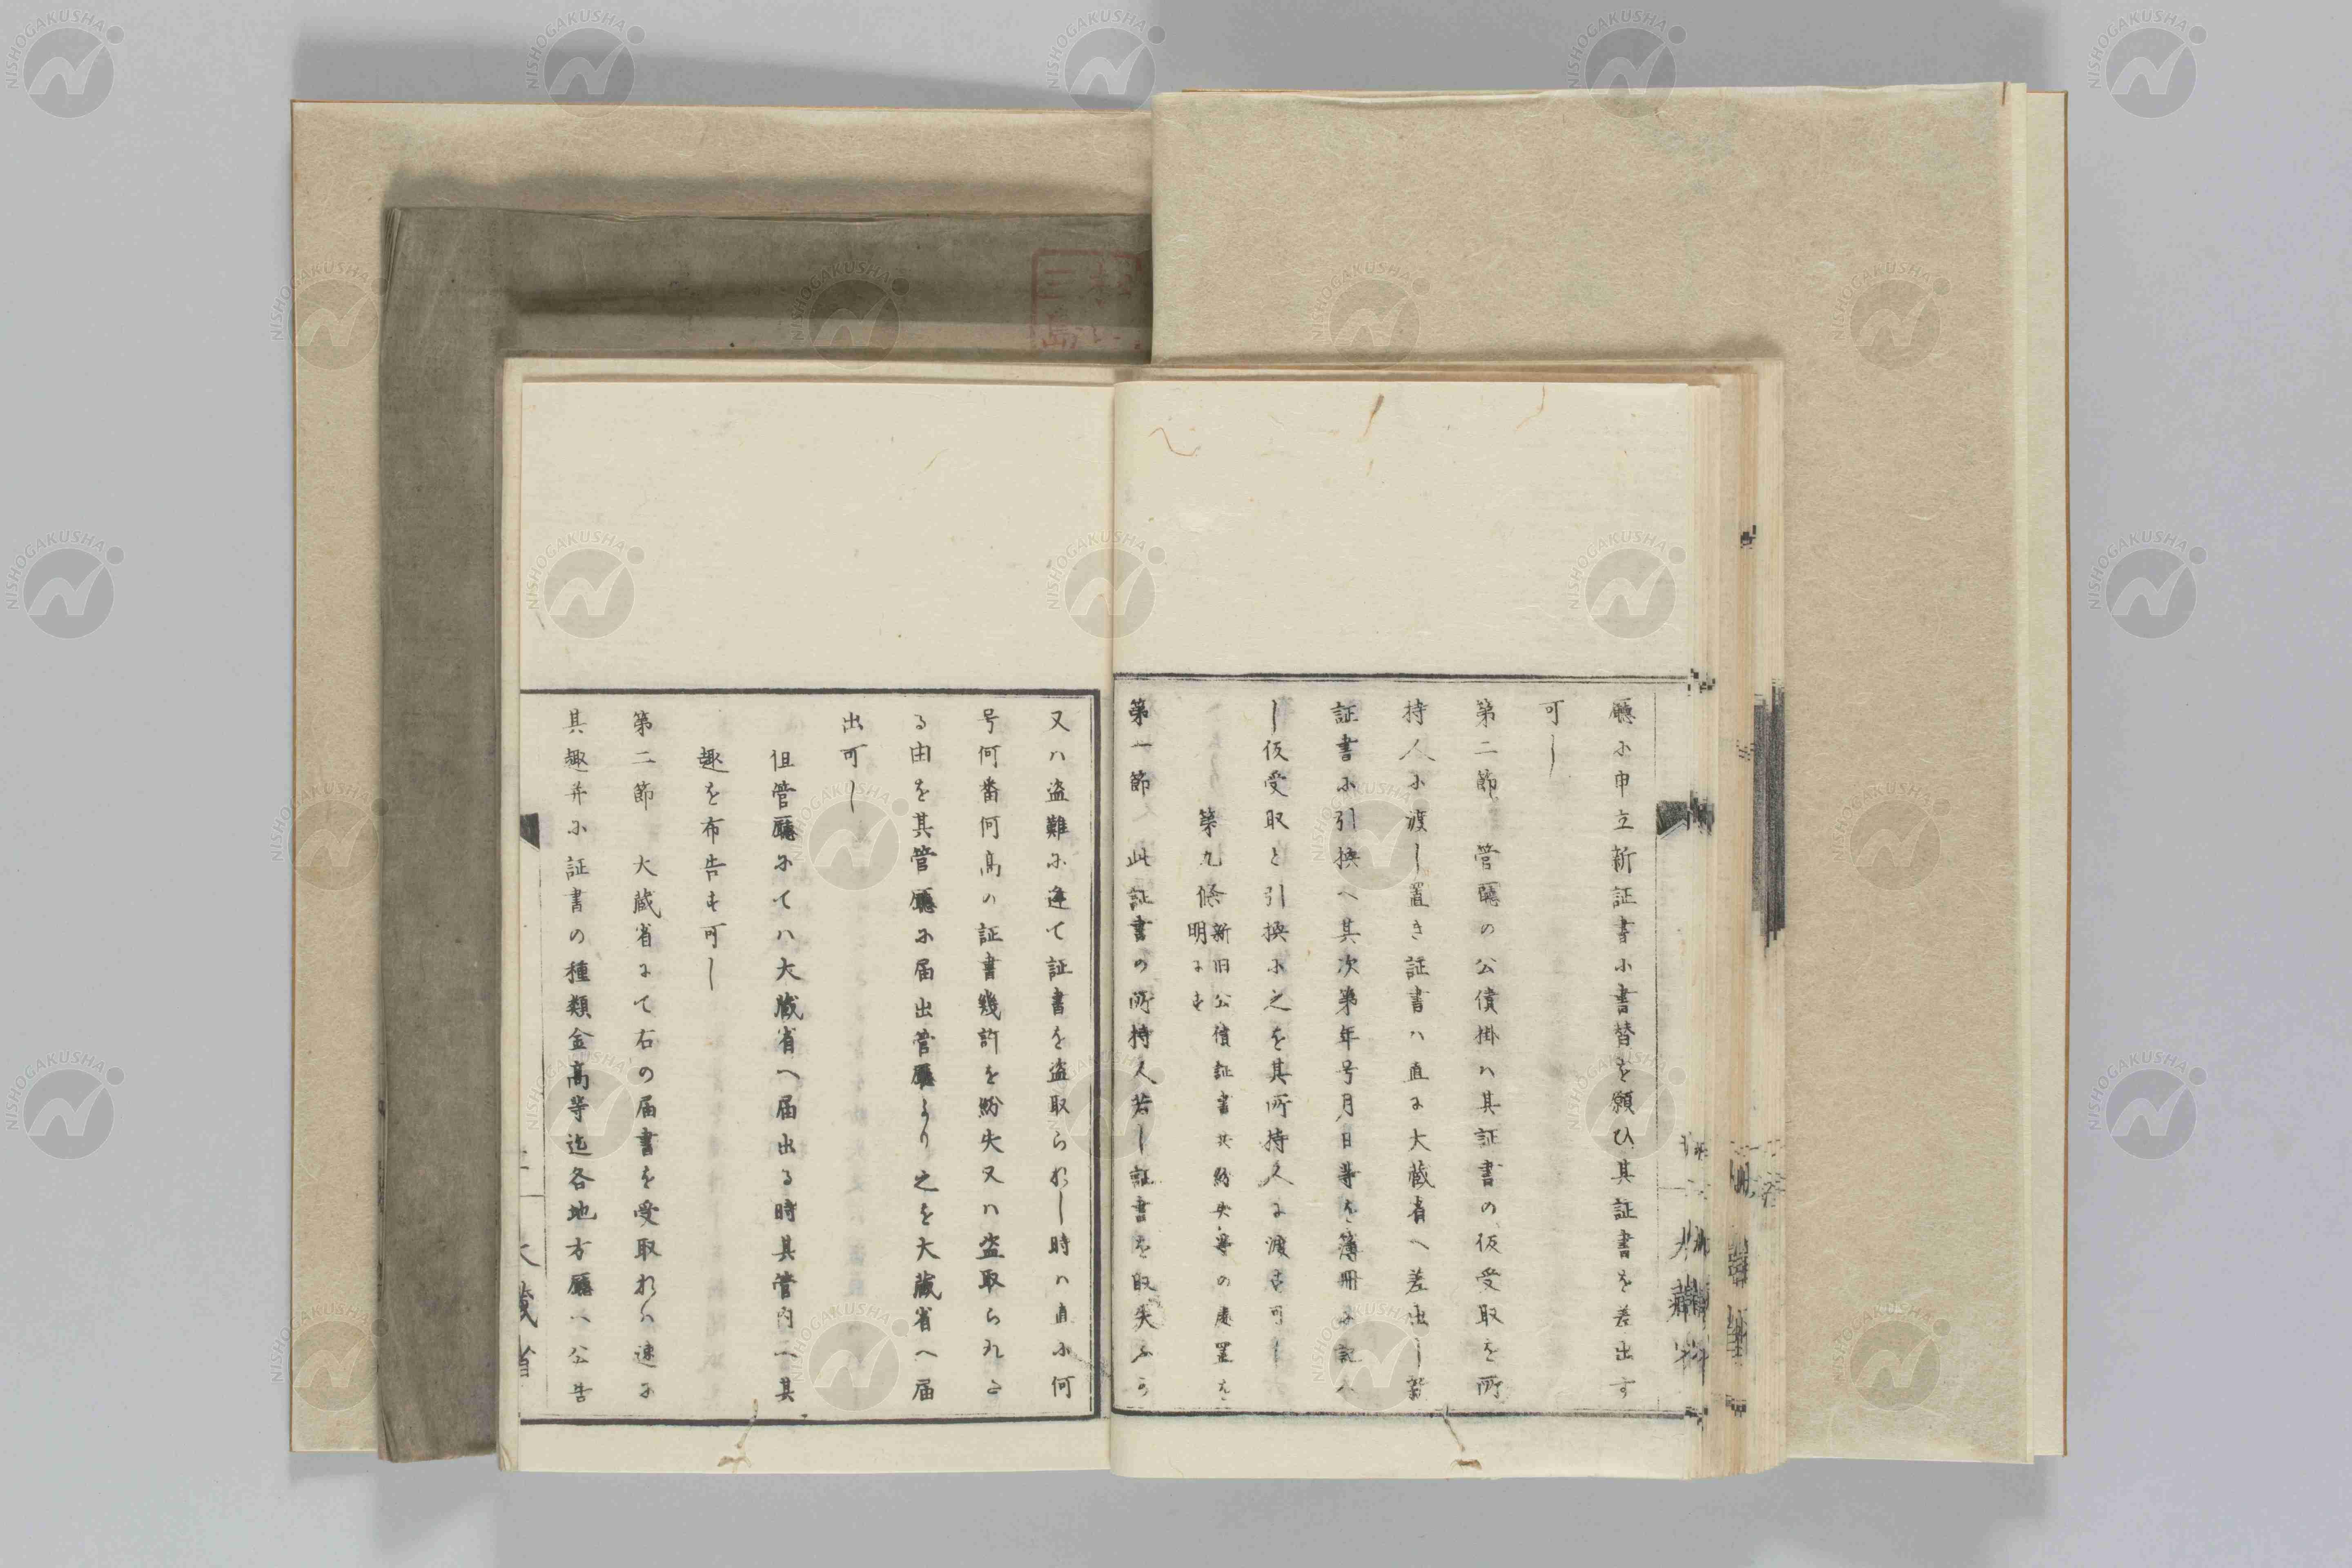 廳小申立新証書小書替を願ひ其証書を差出す
可し
第二節　管廳の公債掛ハ其証書の仮受取を所
持人小渡し置き証書ハ直に大蔵省へ差出し新
証書小引換へ其次第年号月日等を簿冊に記へ
し仮受取と引換小之を其所持人に渡す可し
第九條　新旧公債証書共紛失等の處置を
明にす
第一節　此証書の所持人若し証書を取失ふか
又ハ盗難に逢て証書を盗取られし時ハ直小何
号何番何高の証書幾許を紛失又ハ盗取られた
る由を其管廳に届出管廳より之を大蔵省へ届
出可し
但管廳にてハ大蔵省へ届出る時其管内へ其
趣を布告す可し
第二節　大蔵省にて右の届書を受取れハ速に
其趣并小証書の種類金高等迄各地方廳へ公告
大蔵省
NISHOGAKUSHA